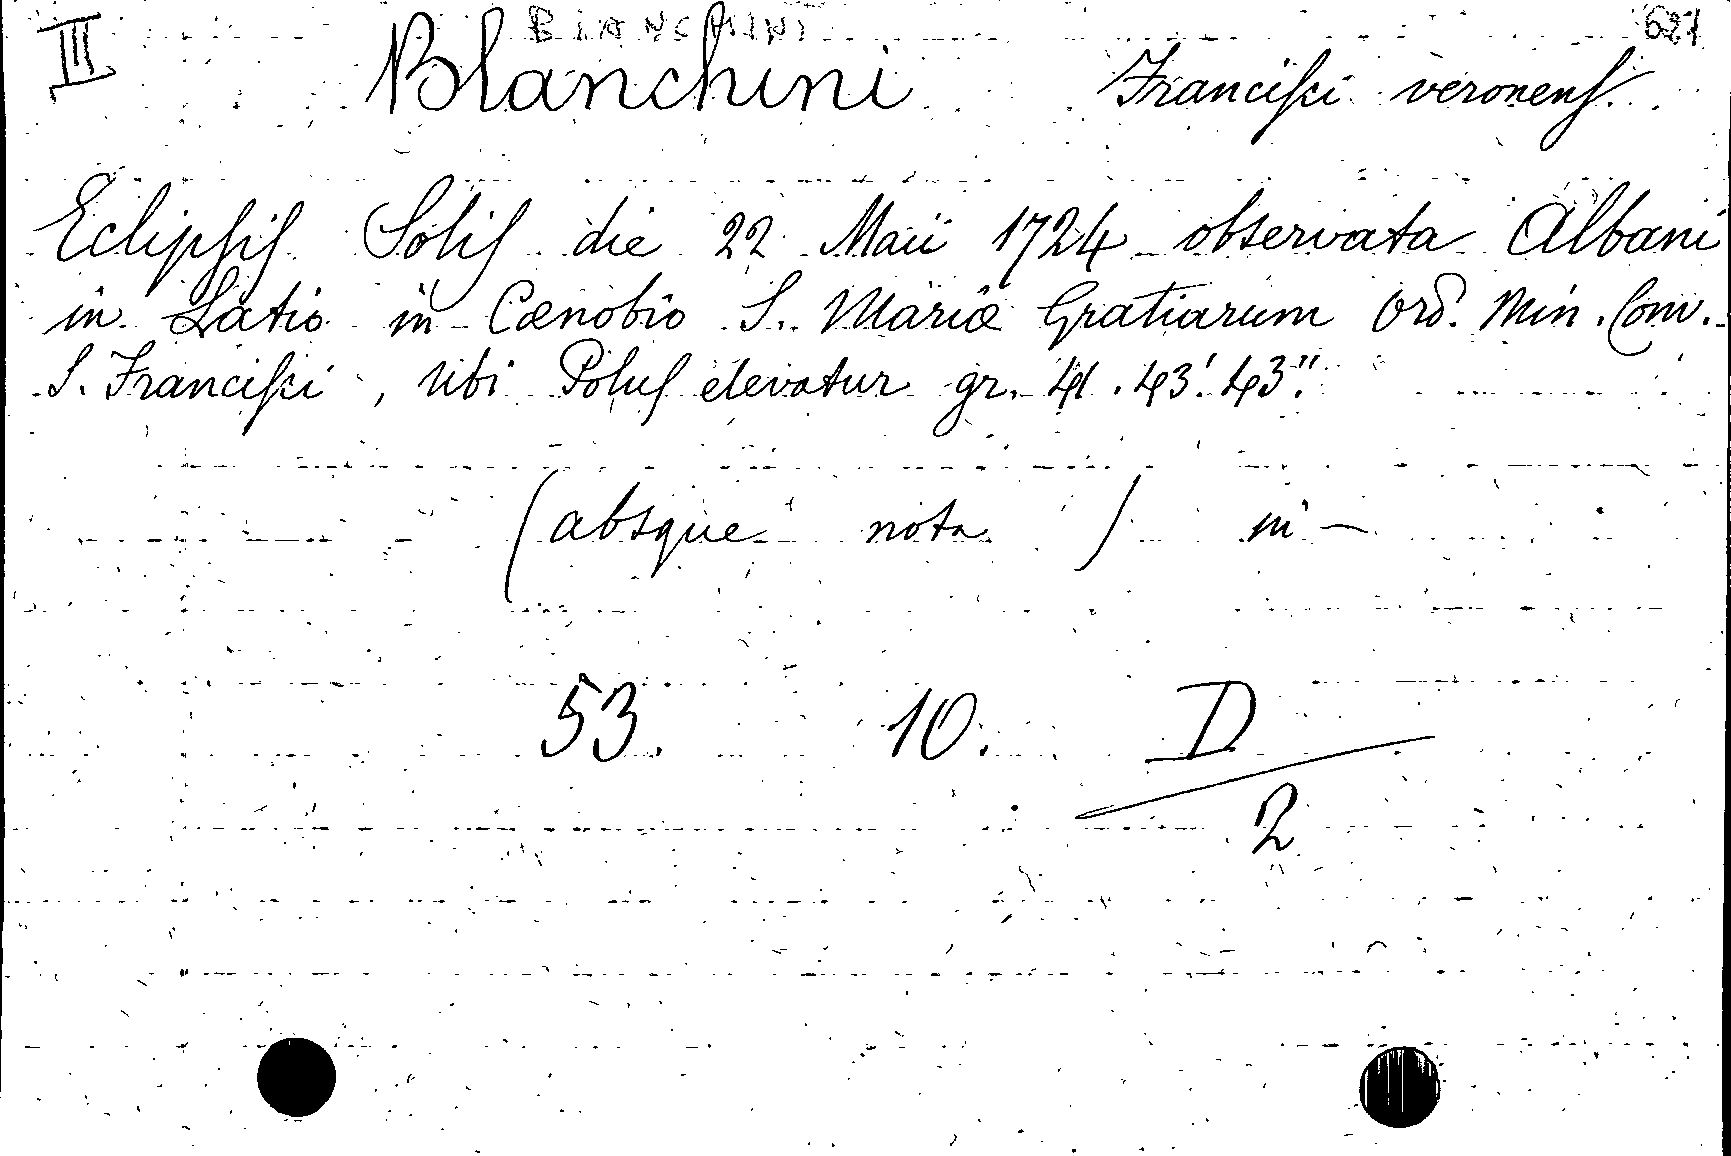 III BIANCHINI 627
Blanchini Franciſci veronenſ.
Eclipſiſ Soliſ die 22 Maii 1724 observata Albani
in Latio in Cœnobio S. Mariæ Gratiarum Ord. Min. Conv.
S. Franciſci, Ubi Poluſ elevatur gr. 41. 43'. 43''.
(absque nota) in —
53. 10. D
2